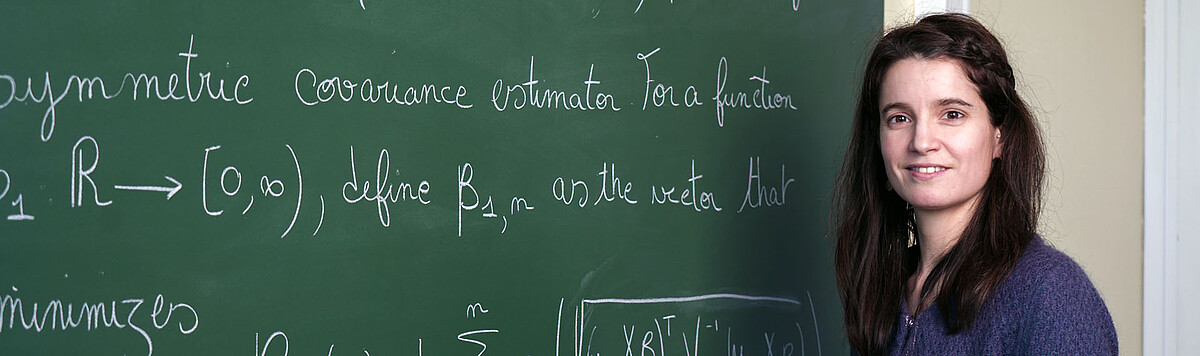 symmetric covariance estimator. For a function
ρ₁ ℝ → [0,∞), define β₁,ₙ as the vector that
minimizes
n
Σ (‖√(XB)ᵀ V⁻¹